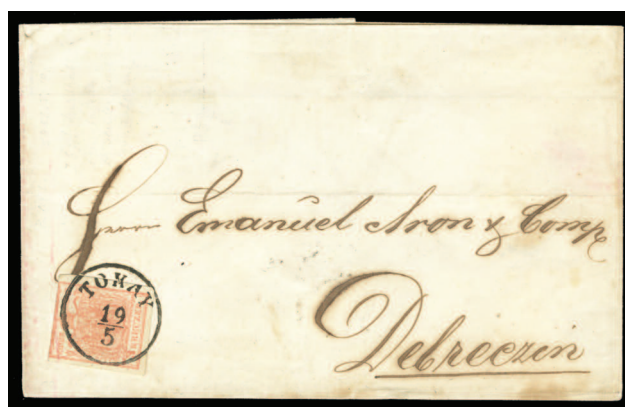 Herrn Emanuel Aron & Comp
TOKAY
19
5
Debreczin